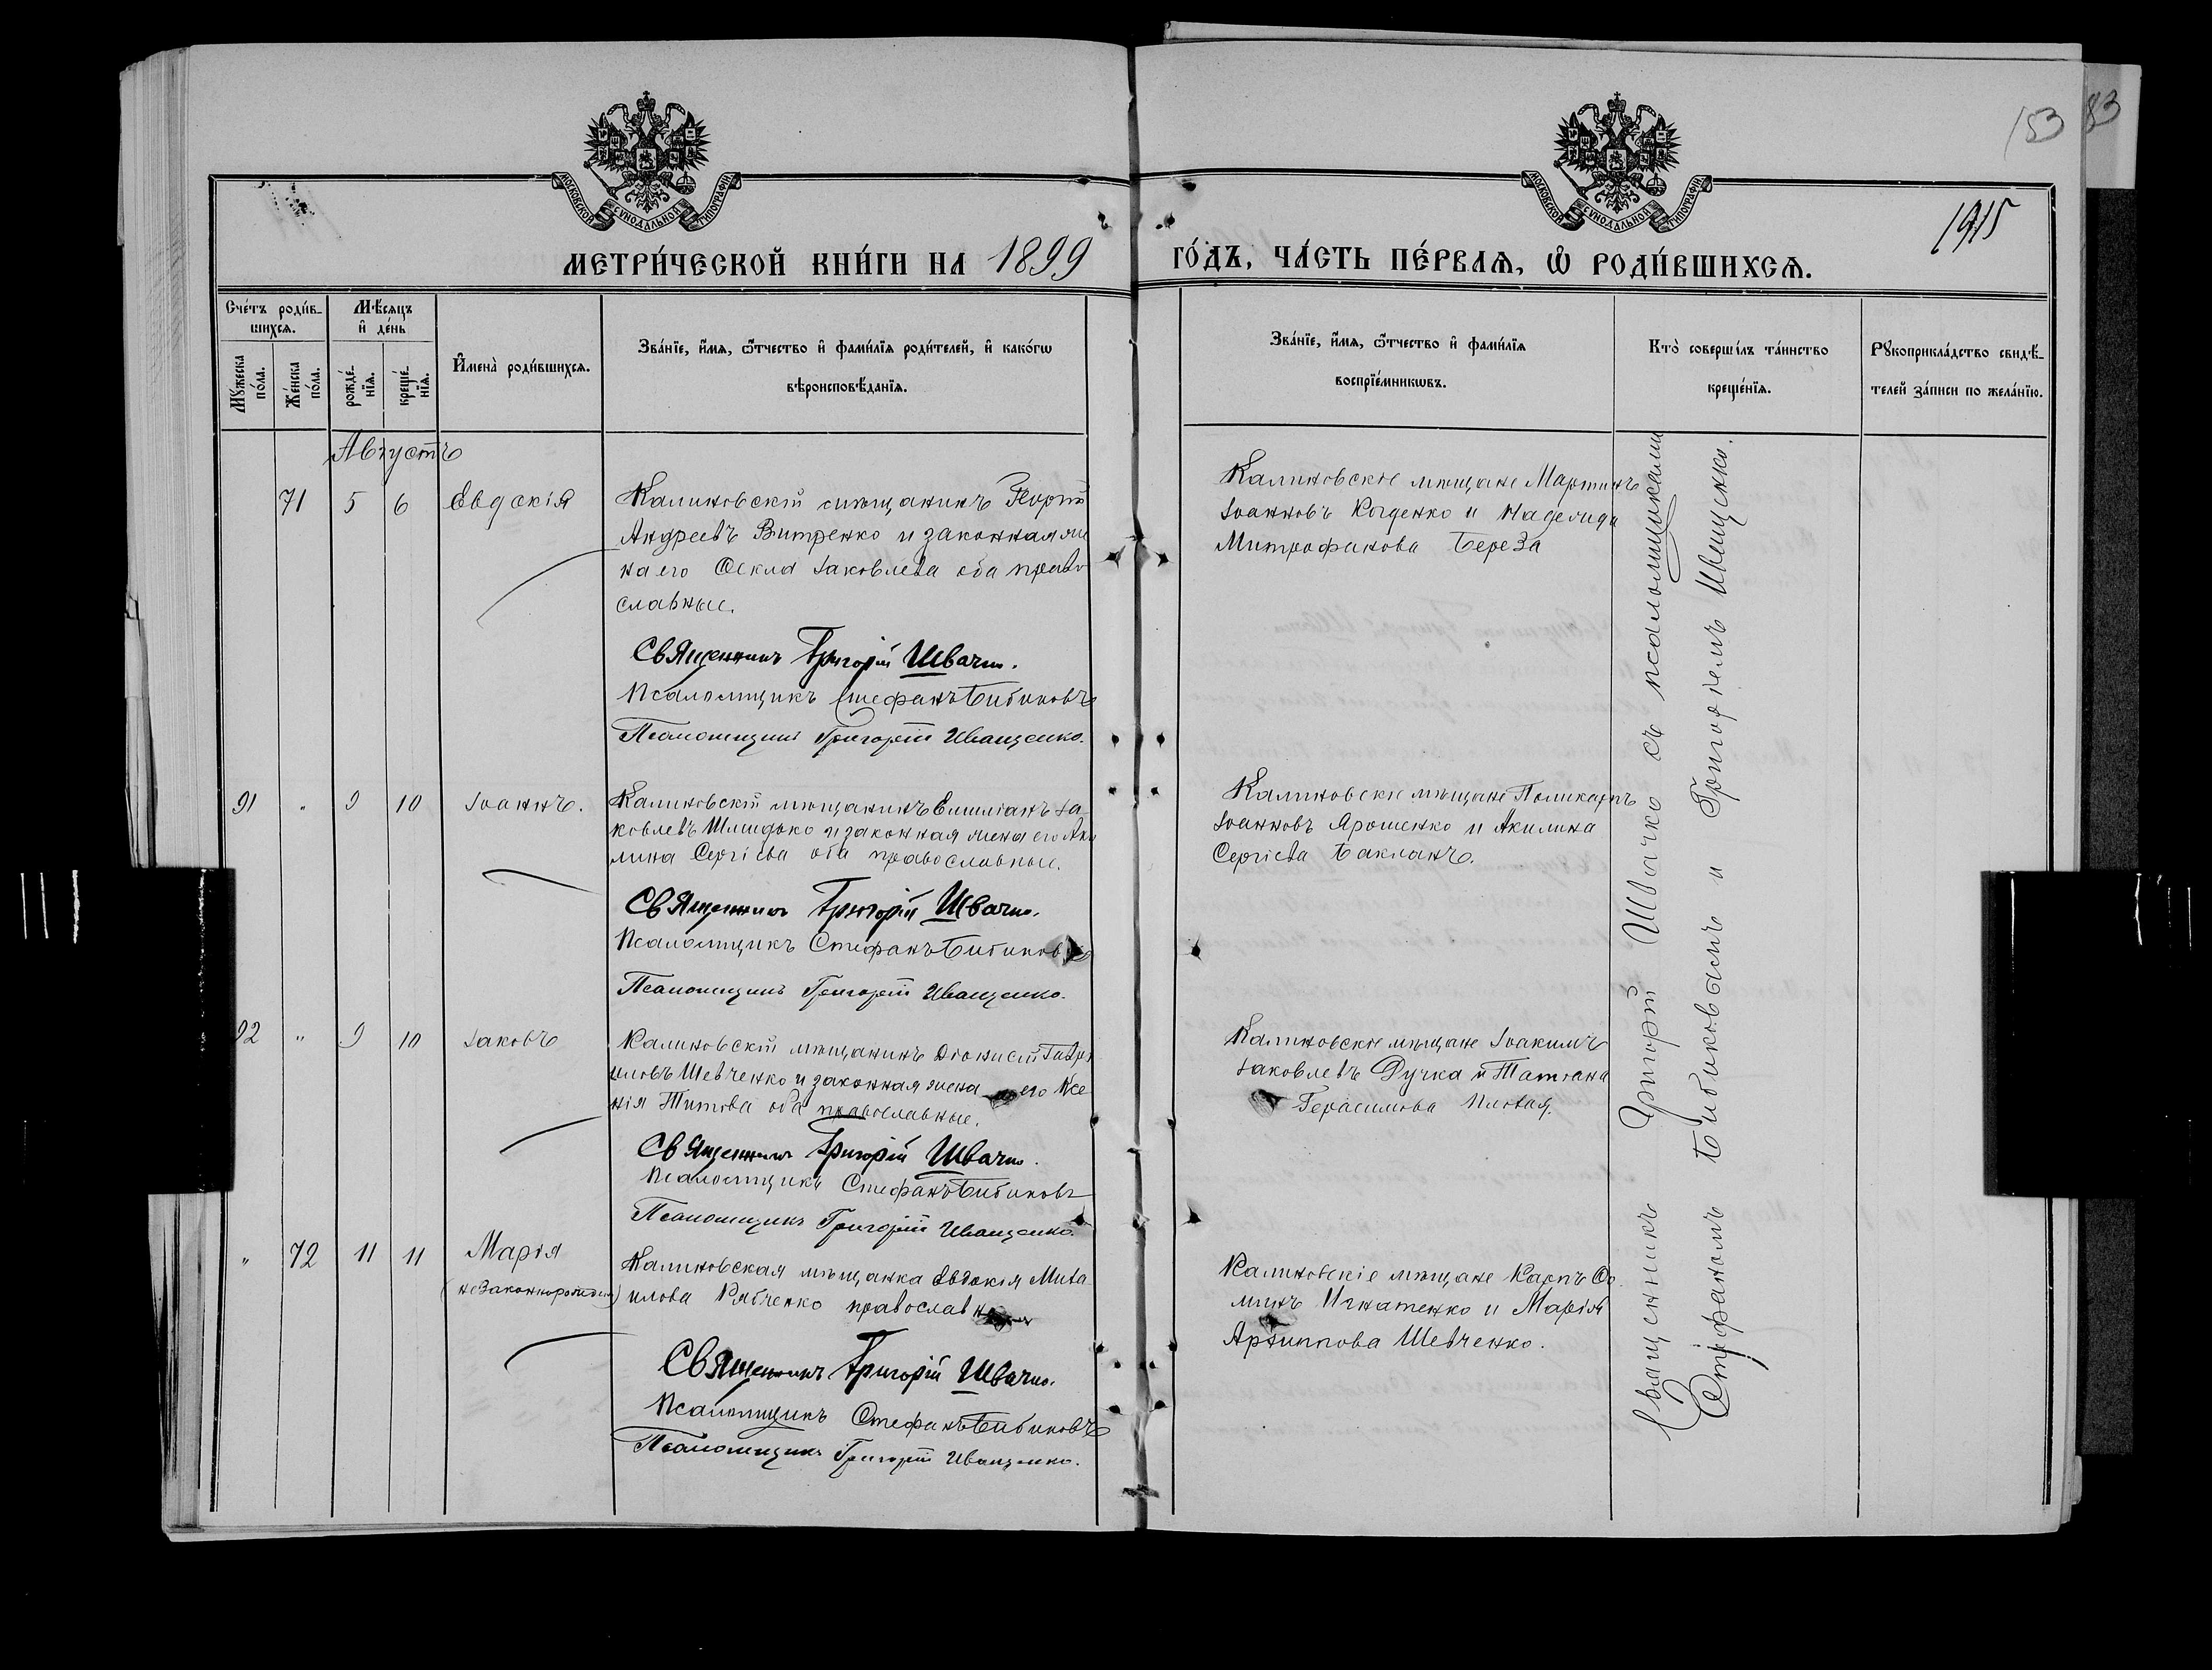 153
83
МОСКОВСКОЙ СѴНОДАЛЬНОЙ ТИПОГРАФІИ
МОСКОВСКОЙ СѴНОДАЛЬНОЙ ТИПОГРАФІИ
1915
МЕТРИ́ЧЕСКОЙ КНИ́ГИ НА 1899
ГО́ДЪ, ЧА́СТЬ ПЕ́РВАѦ, Ѡ РОДИ́ВШИХСѦ.
Сче́тъ роди́в-
шихсѧ.
Мꙋ́жеска по́ла.
Же́нска по́ла.
Мѣ́сѧцъ
и҆ де́нь
рожде́-
нїѧ.
креще́-
нїѧ.
И҆мена̀ роди́вшихсѧ.
Зва́нїе, и҆́мѧ, ѻ҆́тчество и҆ фами́лїѧ роди́телей, и҆ како́гѡ
вѣроисповѣ́данїѧ.
Зва́нїе, и҆́мѧ, ѻ҆́тчество и҆ фами́лїѧ
воспрїе́мникѡвъ.
Кто̀ соверши́лъ та́инство
креще́нїѧ.
Рꙋкоприкла́дство свидѣ́-
телей за́писи по жела́нїю.
Августъ
71 5 6 Евдокія
Калиновскій мѣщанинъ Георгій
Андреевъ Витренко и законная же
на его Ѳекла Іаковлева оба право
славные.
Священникъ Григорій Швачко.
Псаломщикъ Стефанъ Бибиковъ
Псаломщикъ Григорій Иващенко.
Калиновскіе мѣщане Мартинъ
Іоанновъ и Надежда
Митрофанова Береза
91 " 9 10 Іоаннъ.
Калиновскій мѣщанинъ Емиліанъ Іа
ковлевъ Шмидько и законная жена его Аки
лина Сергіева оба православные.
Священникъ Григорій Швачко.
Псаломщикъ Стефанъ Бибиковъ
Псаломщикъ Григорій Иващенко.
Калиновскіе мѣщане Поликарпъ
Іоанновъ Ярошенко и Акилина
Сергіева Бакланъ.
92 " 9 10 Іаковъ
Калиновскій мѣщанинъ Діонисій Гаврі
иловъ Шевченко и законная жена его Ксе
нія Титова оба православные.
Священникъ Григорій Швачко.
Псаломщикъ Стефанъ Бибиковъ
Псаломщикъ Григорій Иващенко.
Калиновскіе мѣщане Іоакимъ
Іаковлевъ Дучка и Татіана
Герасимова
" 72 11 11 Марія
(незаконнорожден)
Калиновская мѣщанка Евдокія Миха
илова Рябченко православная
Священникъ Григорій Швачко.
Псаломщикъ Стефанъ Бибиковъ
Псаломщикъ Григорій Иващенко.
Калиновскіе мѣщане Карпъ Ѳо
минъ Игнатенко и Марія
Архиппова Шевченко.
Священникъ Григорій Швачко съ псаломщиками
Стефаномъ Бибиковымъ и Григоріемъ Иващенко.